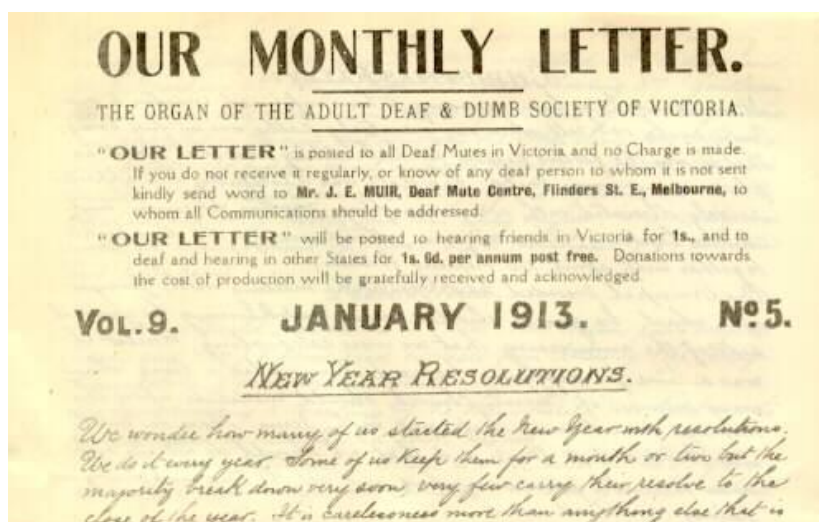 OUR MONTHLY LETTER.
THE ORGAN OF THE ADULT DEAF & DUMB SOCIETY OF VICTORIA.
"OUR LETTER" is posted to all Deaf Mutes in Victoria and no Charge is made.
If you do not receive it regularly, or know of any deaf person to whom it is not sent
kindly send word to Mr. J. E. MUIR, Deaf Mute Centre, Flinders St. E., Melbourne, to
whom all Communications should be addressed.
"OUR LETTER" will be posted to hearing friends in Victoria for 1s., and to
deaf and hearing in other States for 1s. 6d. per annum post free. Donations towards
the cost of production will be gratefully received and acknowledged.
VOL. 9. JANUARY 1913. No. 5.
NEW YEAR RESOLUTIONS.
We wonder how many of us started the New Year with resolutions.
We do it every year. Some of us keep them for a month or two but the
majority break down very soon, very few carry their resolve to the
close of the year. It is carelessness more than anything else that is